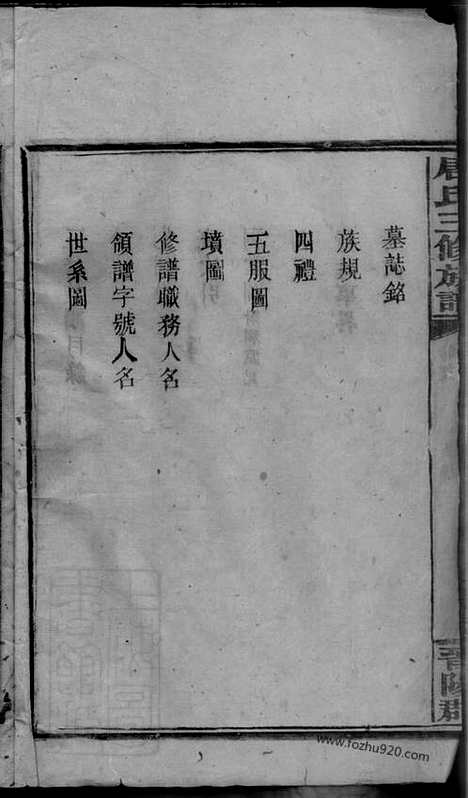 墓誌銘
族規
四禮
五服圖
墳圖
修譜職務人名
領譜字號人名
世系圖
氏三修族譜
晉陽郡
www.fozhu920.com